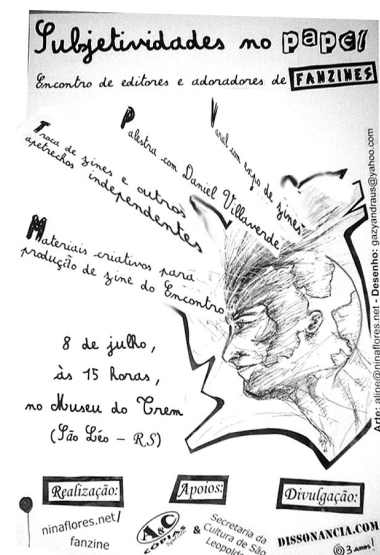 Subjetividades no papel
Encontro de editores e adoradores de FANZINES
Varal com expo de zines
Palestra com Daniel Villaverde
Troca de zines e outros
apetrechos independentes
Materiais criativos para
produção de zine do Encontro
8 de julho,
às 15 horas,
no Museu do Trem
(São Léo - RS)
Arte: aline@ninaflores.net - Desenho: gazyandraus@yahoo.com
Realização:
ninaflores.net/
fanzine
Apoios:
A&C
COPIAS
&
Secretaria da
Cultura de São
Leopoldo
Divulgação:
DISSONANCIA.COM
3 anos!